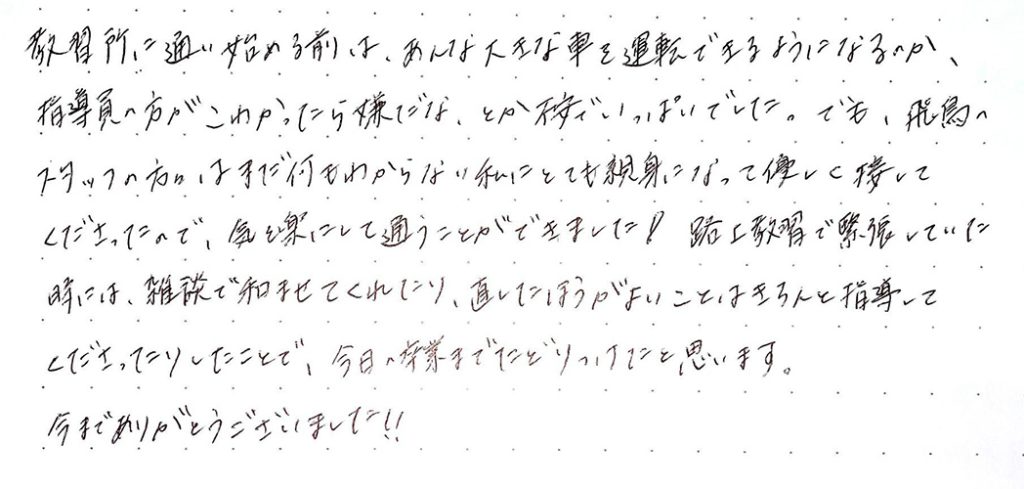 教習所に通い始める前は、あんな大きな車を運転できるようになるのか、
指導員の方がこわかったら嫌だな、とか不安でいっぱいでした。でも、飛鳥の
スタッフの方々はまだ何もわからない私にとても親身になって優しく接して
くださったので、気を楽にして通うことができました! 路上教習で緊張していた
時には、雑談で和ませてくれたり、直したほうがよいことはきちんと指導して
くださったりしたことで、今日の卒業までたどりつけたと思います。
今までありがとうございました!!